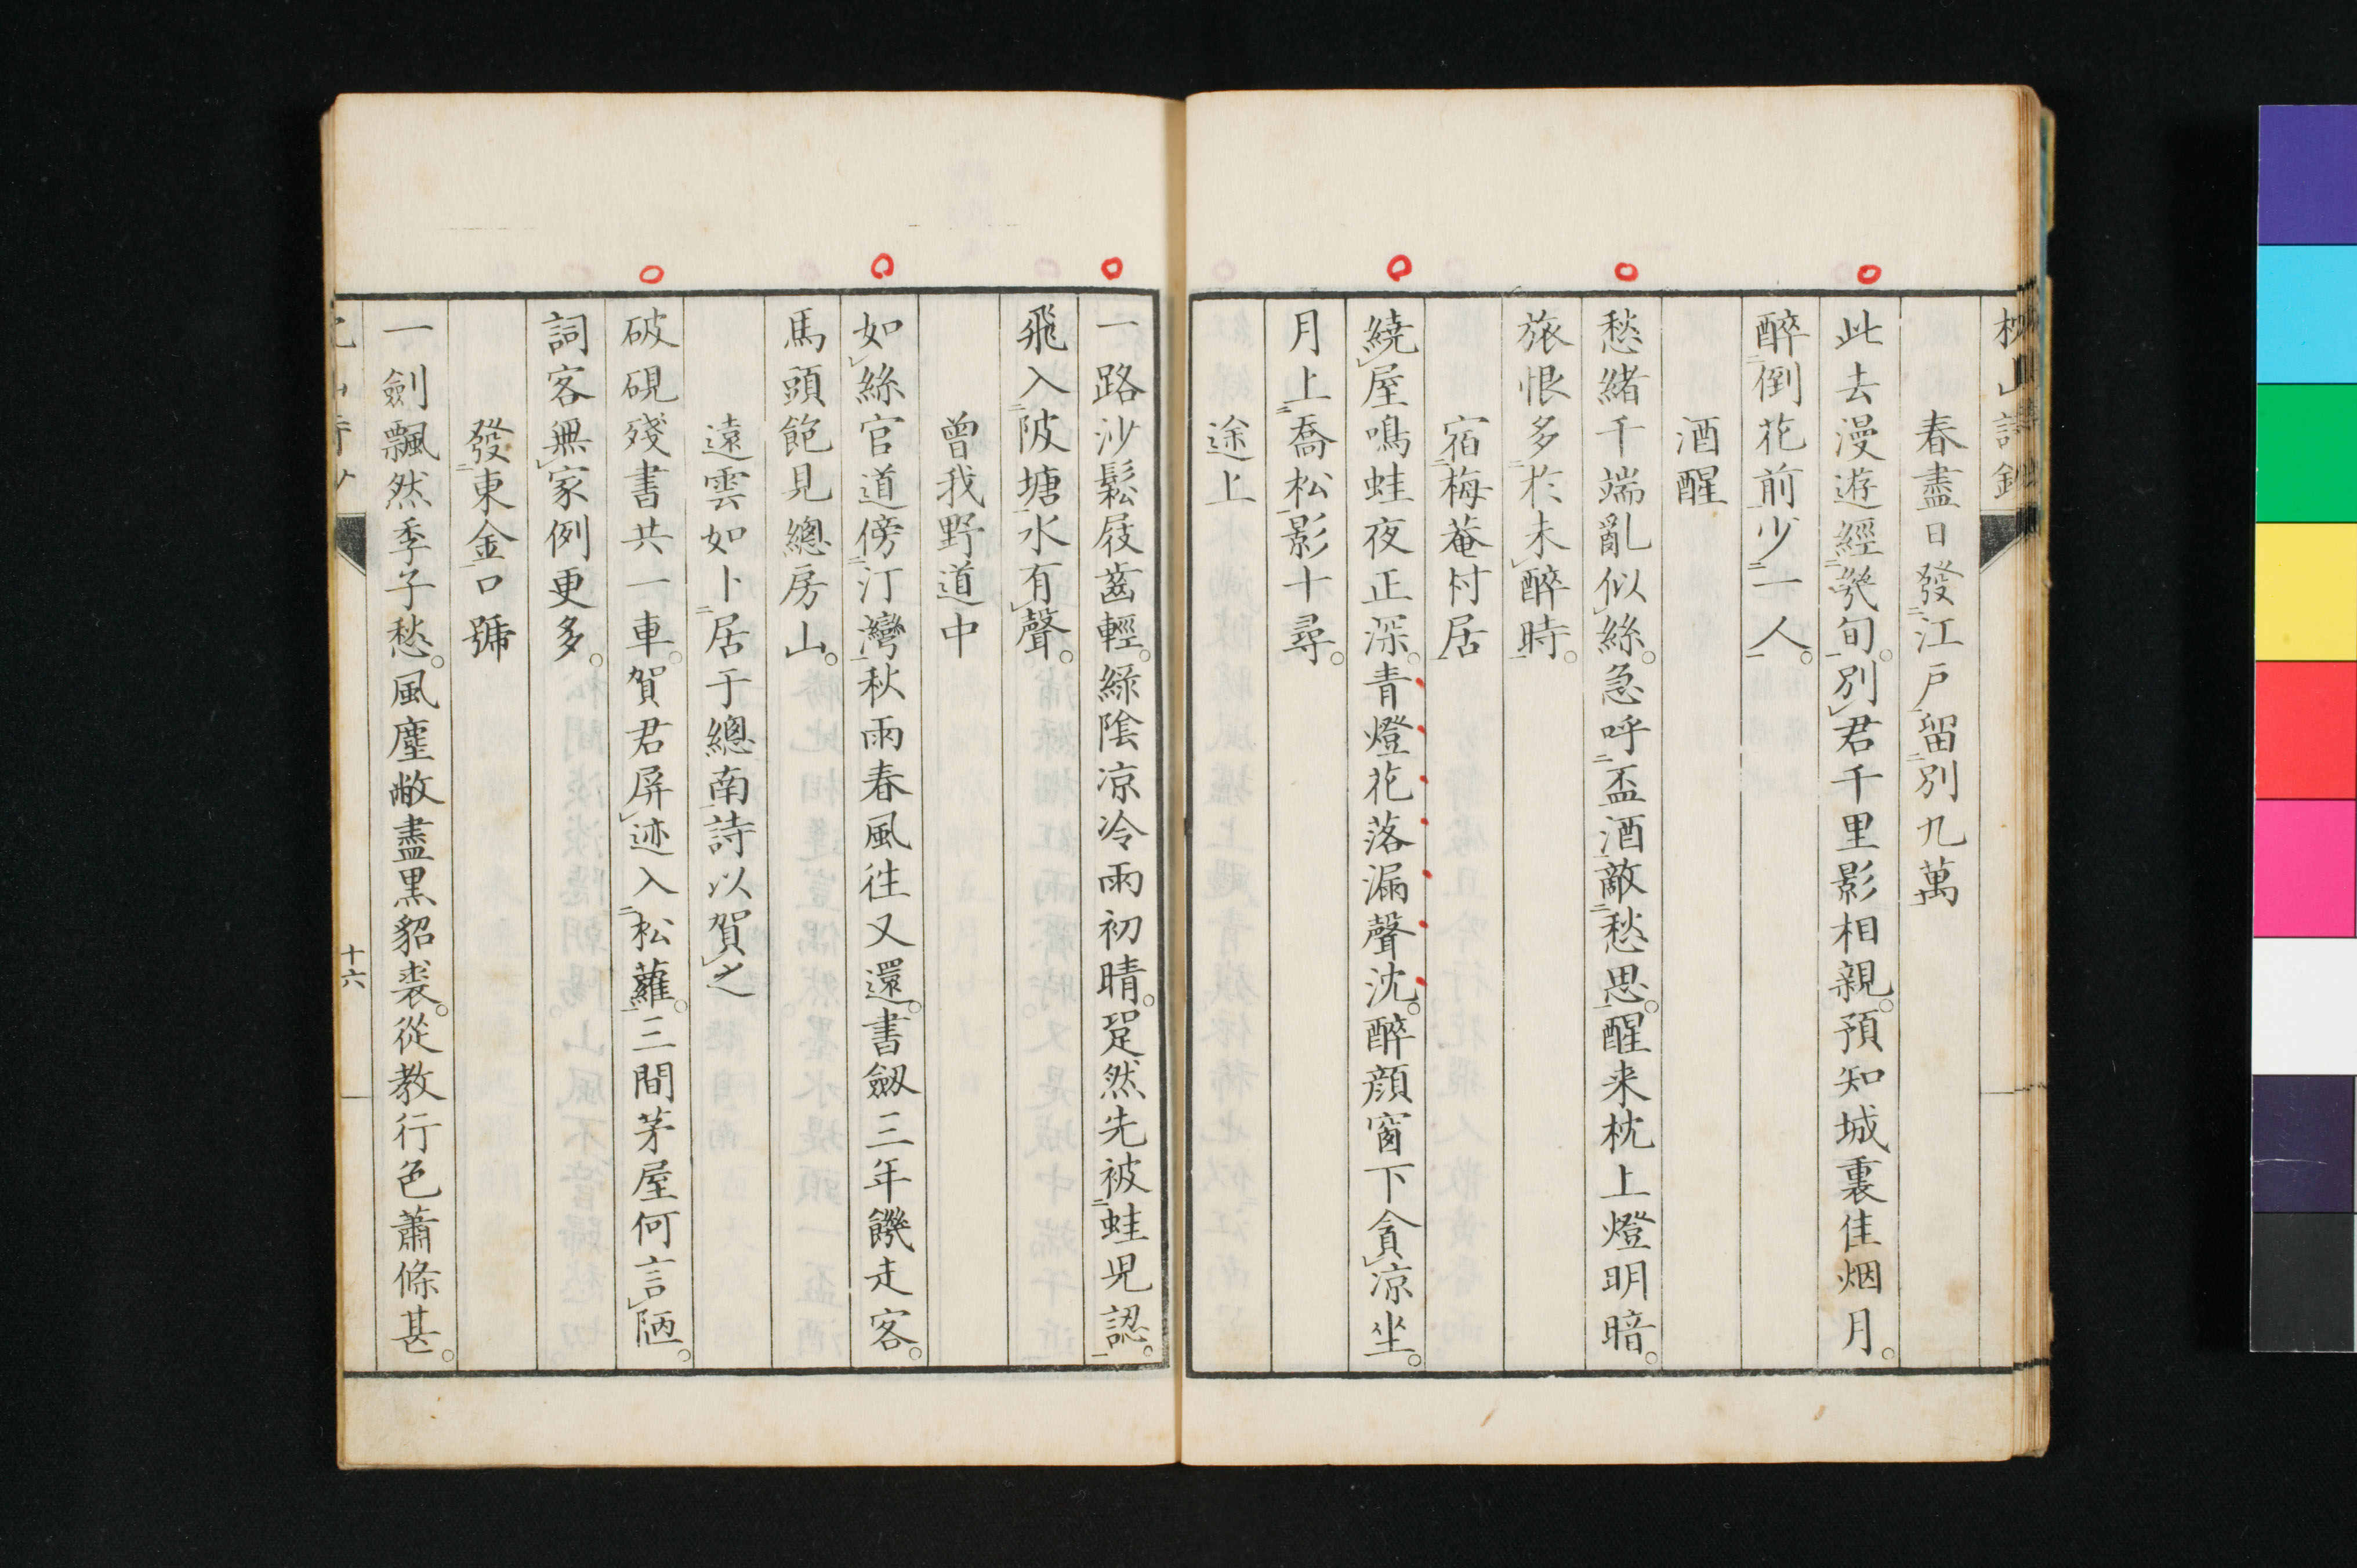 春盡日發江戶留別九萬
此去漫遊經幾旬。別君千里影相親。預知城裏佳烟月。
醉倒花前少一人。
酒醒
愁緒千端亂似絲。急呼盃酒敵愁思。醒来枕上燈明暗。
旅恨多於未醉時。
宿梅菴村居
繞屋鳴蛙夜正深。青燈花落漏聲沈。醉顔窗下貪凉坐。
月上喬松影十尋。
途上
一路沙鬆屐齒輕。綠陰凉冷雨初晴。跫然先被蛙児認。
飛入陂塘水有聲。
曾我野道中
如絲官道傍汀灣。秋雨春風往又還。書劔三年饑走客。
馬頭飽見總房山。
遠雲如卜居于總南詩以賀之
破硯殘書共一車。賀君屏迹入松蘿。三間茅屋何言陋。
詞客無家例更多。
發東金口號
一劍飄然季子愁。風塵敝盡黒貂裘。從教行色蕭條甚。
十六